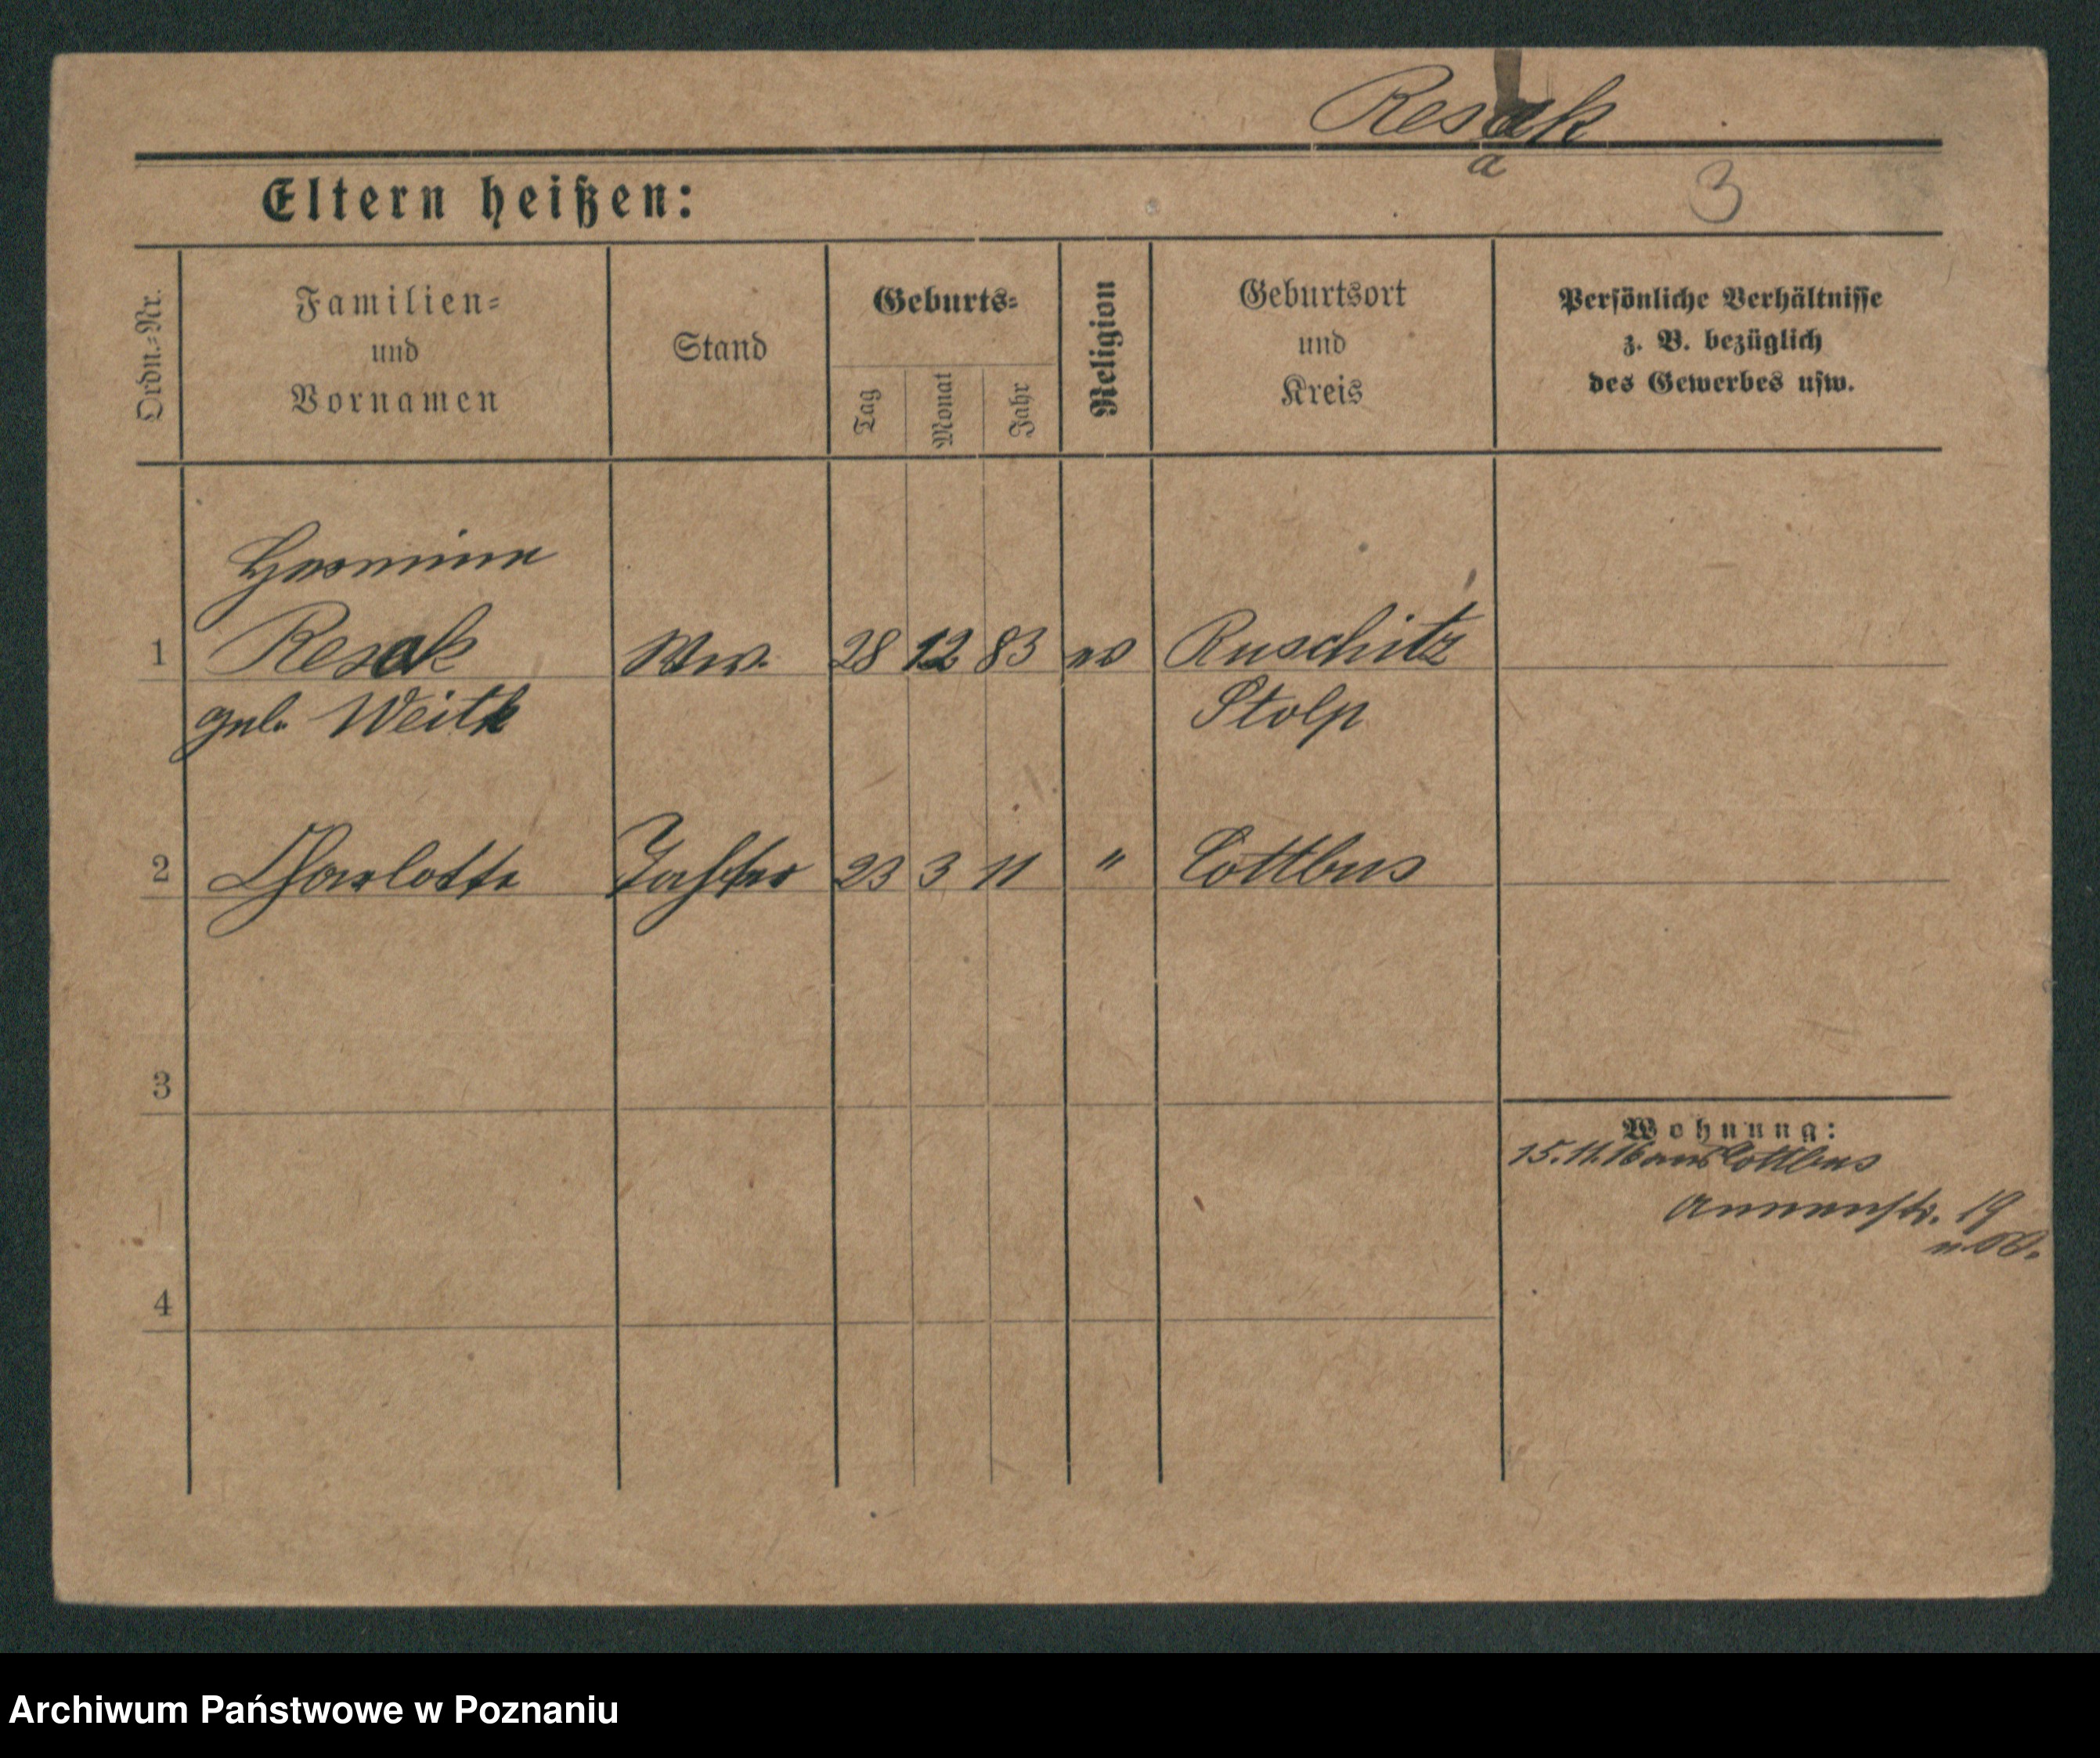 Resak
a
3
Eltern heißen:
Ordn.-Nr.
Familien-
und
Vornamen
Stand
Geburts-
Tag
Monat
Jahr
Religion
Geburtsort
und
Kreis
Persönliche Verhältnisse
z. B. bezüglich
des Gewerbes usw.
Hermine
1 Resak Ww. 28 12 83 ev Ruschitz
geb. Weitk Stolp
2 Charlotte Tochter 23 3 11 " Cottbus
3
Wohnung:
15.11.16 aus Cottbus
Annenstr. 19
4
Archiwum Państwowe w Poznaniu